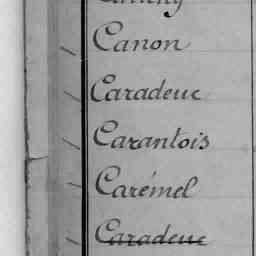 Canon
Caradeuc
Carantois
Carémel
Caradeuc